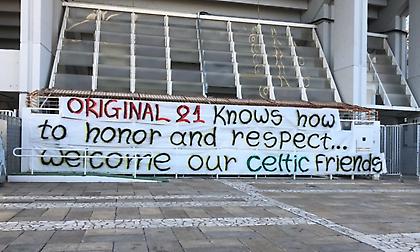 ORIGINAL 21 Knows how
to honor and respect...
welcome our celtic Friends